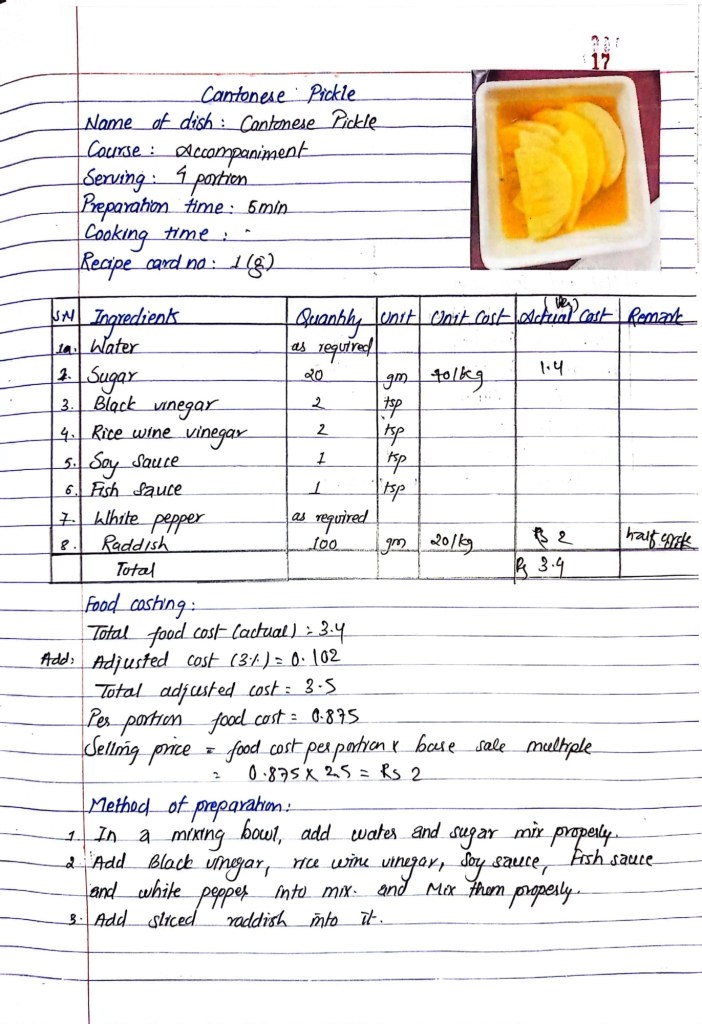 17
Cantonese Pickle
Name of dish : Cantonese Pickle
Course : Accompaniment
Serving : 4 portion
Preparation time : 5min
Cooking time : -
Recipe card no : 1 (g)
SN Ingredients Quantity Unit Unit Cost Actual Cost Remark
1. Water as required
2. Sugar 20 gm 70/kg 1.4
3. Black vinegar 2 tsp
4. Rice wine vinegar 2 tsp
5. Soy Sauce 1 tsp
6. Fish Sauce 1 tsp
7. White pepper as required
8. Raddish 100 gm 20/kg Rs 2 half circle
Total Rs 3.4
Food costing :
Total food cost (actual) = 3.4
Add: Adjusted cost (3%) = 0.102
Total adjusted cost = 3.5
Per portion food cost = 0.875
Selling price = food cost per portion x base sale multiple
= 0.875 x 2.5 = Rs 2
Method of preparation :
1. In a mixing bowl, add water and sugar mix properly.
2. Add Black vinegar, rice wine vinegar, Soy sauce, Fish sauce
and white pepper into mix. and Mix them properly.
3. Add sliced raddish into it.